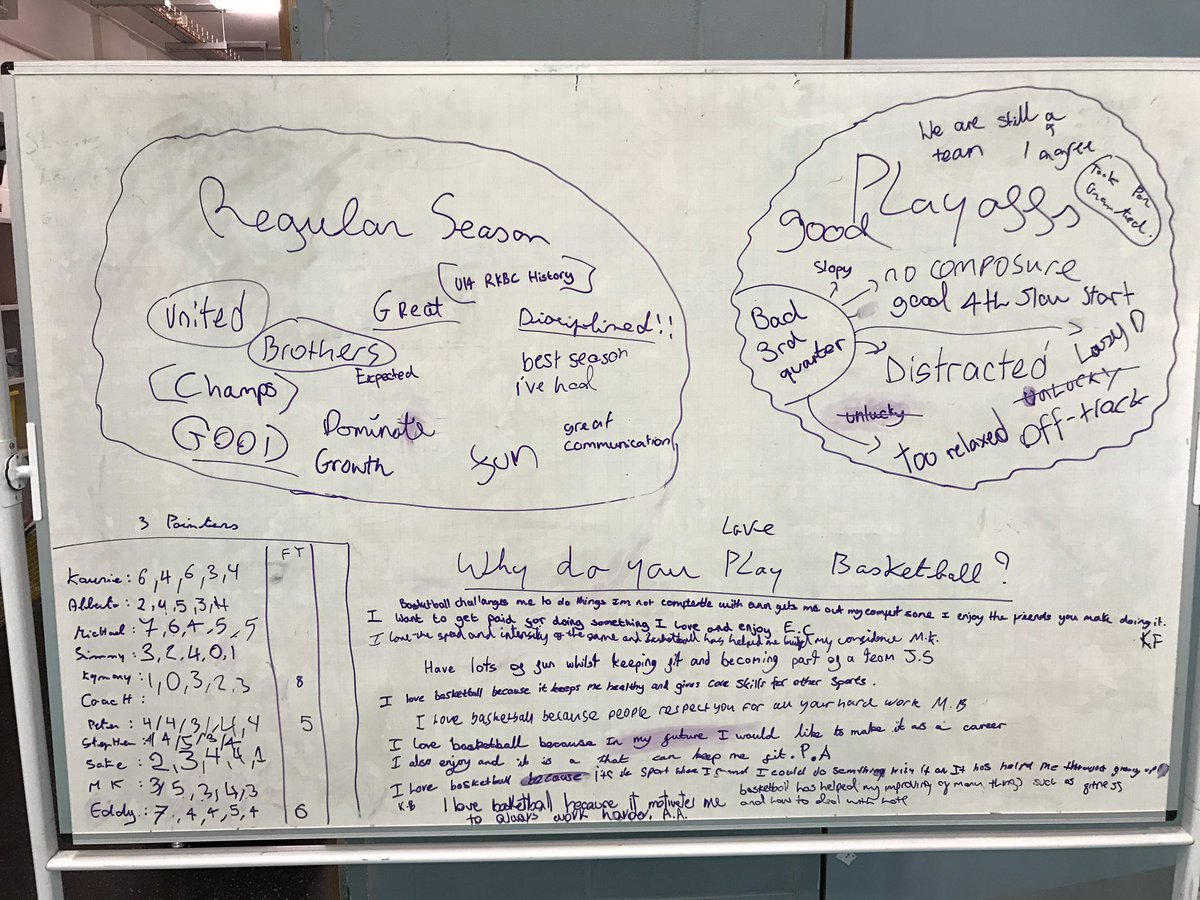 Regular Season
U14 RKBC History
United
Great
Disciplined!!
Brothers
Expected
best season
i've had
(Champs)
GOOD
Dominate
Growth
fun
great
communication
We are still a
team I agree
Playoffs
Took For
good
Slopy
no composure
good 4th slow start
Bad
3rd
quarter
Distracted
Lazy D
unlucky
UNLUCKY
too relaxed
Off-track
3 Pointers
FT
Kaurie: 6, 4, 6, 3, 4
Alberto: 2, 4, 5, 3, 4
Michael: 7, 6, 4, 5, 5
Simmy: 3, 2, 4, 0, 1
Kymany: 1, 0, 3, 2, 3 8
Coach H:
Peter: 4/4/3/4, 4 5
Stephen:
Sake: 2, 3, 4, 4, 1
MK: 3/5, 3, 4, 3
Eddy: 7, 4, 4, 5, 4 6
Love
Why do you Play Basketball?
Basketball challanges me to do things Im not with gets me out my I enjoy the friends you make doing it. KF
I want to get paid for doing something I love and enjoy E.C
I love the speed and intensity of the game and basketball has helped me my confidence M.K.
Have lots of fun whilst keeping fit and becoming part of a team J.S
I love basketball because it keeps me healthy and gives core skills for other sports.
I love basketball because people respect you for all your hard work M.B
I love basketball because In my future I would like to make it as a career
I also enjoy and it is a that can keep me fit. P.A
I love basketball because its the sport I could do something with it It has helped me
K.B
basketball has helped my improving of many things such as fitness
and how to deal with
I love basketball because it motivates me
to always work harder. A.A.